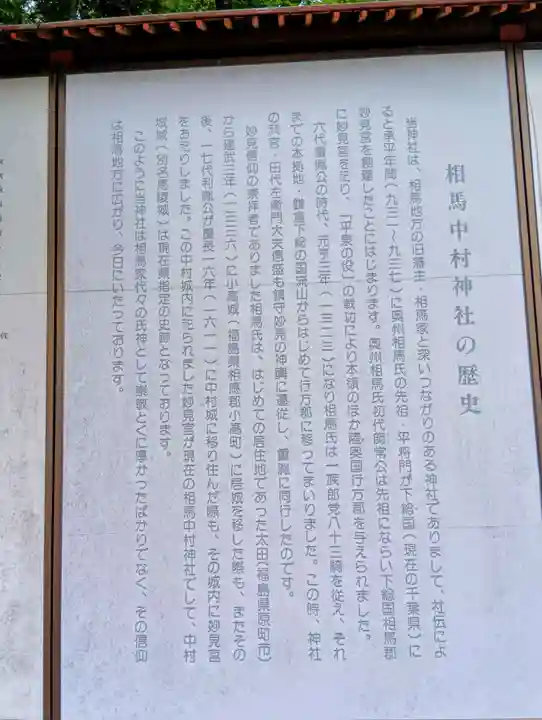 相馬中村神社の歴史
当神社は、相馬地方の旧藩主・相馬家と深いつながりのある神社でありまして、社伝によ
ると承平年間（九三一〜九三七）に奥州相馬氏の先祖・平将門が下総国（現在の千葉県）に
妙見宮を創建したことにはじまります。奥州相馬氏初代師常公は先祖にならい下総国相馬郡
に妙見宮を祀り、「平泉の役」の戦功により本領のほか陸奥国行方郡を与えられました。
六代重胤公の時代、元亨三年（一三二三）になり相馬氏は一族郎党八十三騎を従え、それ
までの本拠地・
下総の国流山からはじめて行方郡に移ってまいりました。この時、神社
の
宮・田代左衛門大夫信盛も鎮守妙見の神輿に遵従し、重胤に同行したのです。
妙見信仰の崇拝者でありました相馬氏は、はじめての居住地であった太田（福島県原町市）
から建武三年（一三三六）に小高城（福島県相馬郡小高町）に居城を移した際も、またその
後、一七代利胤公が慶長一六年（一六一一）に中村城に移り住んだ際も、その城内に妙見宮
をお祀りしました。この中村城内に祀られました妙見宮が現在の相馬中村神社でして、中村
城城（別名馬陵城）は現在県指定の史跡となっております。
このように当神社は相馬家代々の氏神として崇敬とくに厚かったばかりでなく、その信仰
は相馬地方に広がり、今日にいたっております。